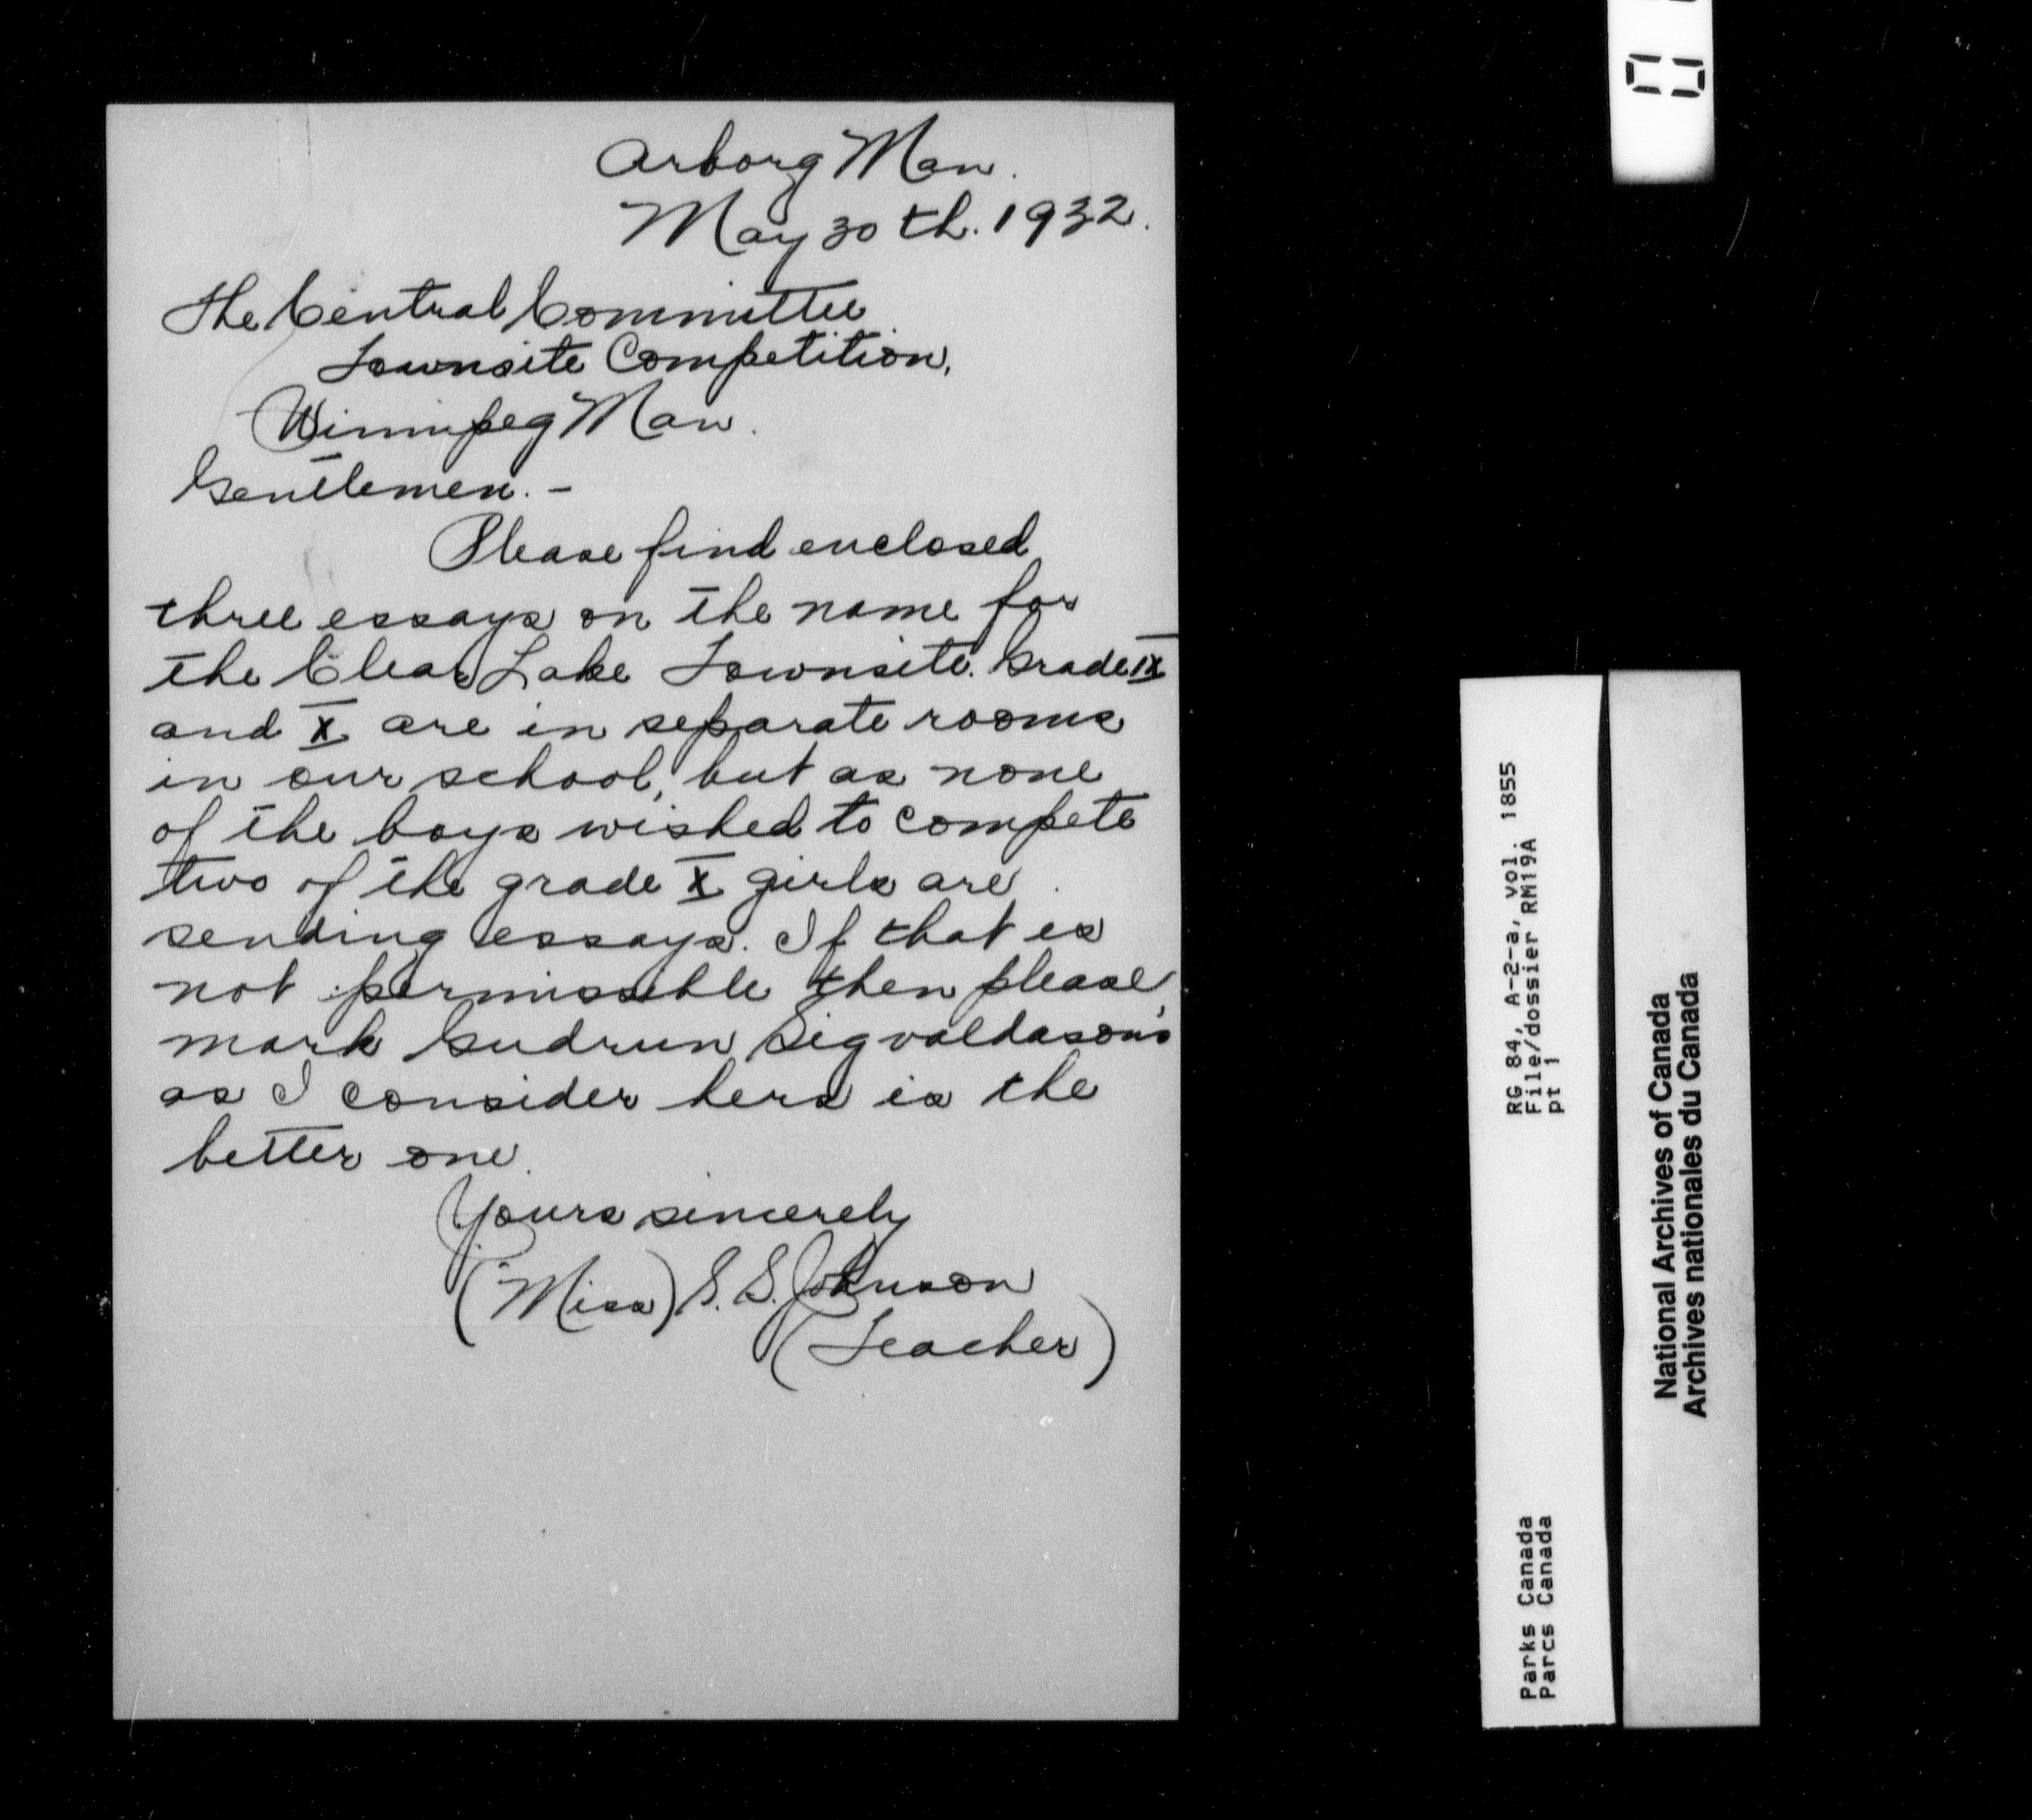 Arborg Man.
May 30th. 1932.
The Central Committee
Townsite Competition,
Winnipeg Man.
Gentlemen. -
Please find enclosed
three essays on the name for
the Clear Lake Townsite. Grade IX
and X are in separate rooms
in our school, but as none
of the boys wished to compete
two of the grade X girls are
sending essays. If that is
not permissible then please
mark Gudrun Sigvaldason's
as I consider hers is the
better one.
Yours sincerely
(Miss) S. S. Johnson
(Teacher)
RG 84, A-2-a, vol. 1855
File/dossier RM19A
pt 1
Parks Canada
Parcs Canada
National Archives of Canada
Archives nationales du Canada